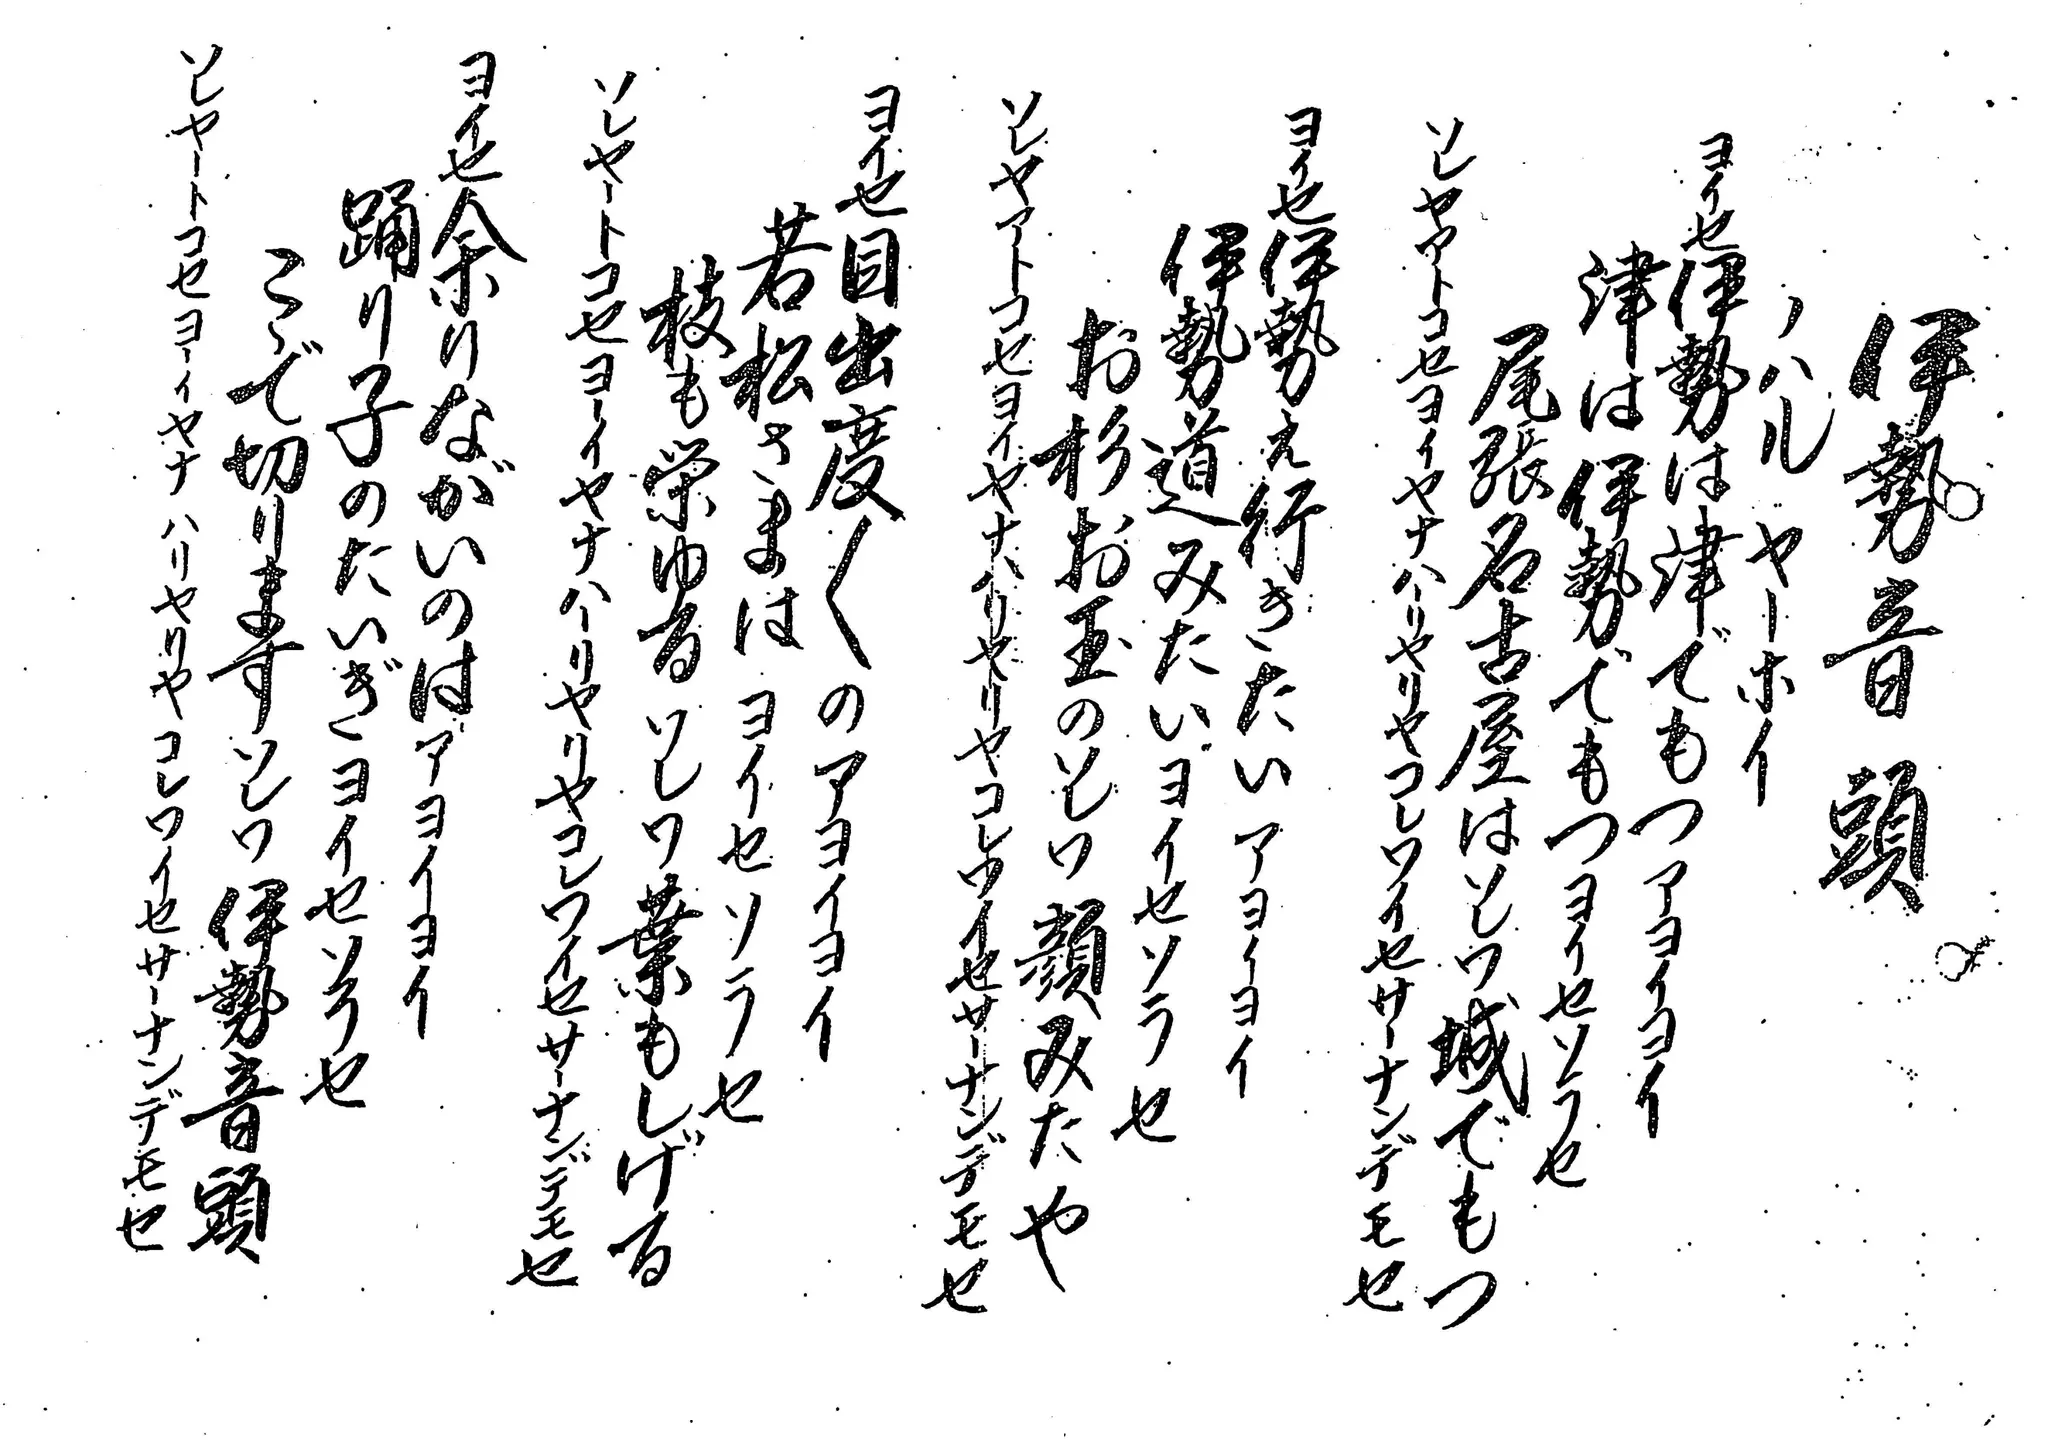 伊勢音頭
ノハル ヤーホイ
ヨイセ伊勢は津でもつアヨイヨイ
津は伊勢でもつヨイセソラセ
尾張名古屋はソレワ城でもつ
ソレヤアトコセヨイヤナハーリヤリヤコレワイセサーナンデモセ
ヨイセ伊勢え行きたいアヨイヨイ
伊勢道みたいヨイセソラセ
お杉お玉のソレワ顔みたや
ソレヤアトコセヨイヤナハリヤリヤコレワイセサーナンデモセ
ヨイセ目出度〱のアヨイヨイ
若松さまはヨイセソラセ
枝も栄ゆるソレワ葉もしげる
ソレヤートコセヨーイヤナハーリヤリヤコレワイセサーナンデモセ
ヨイセ余りながいのはアヨイヨイ
踊り子のたいぎヨイセソラセ
こゝで切りますソレワ伊勢音頭
ソレヤートコセヨーイヤナハリヤリヤコレワイセサーナンデモセ